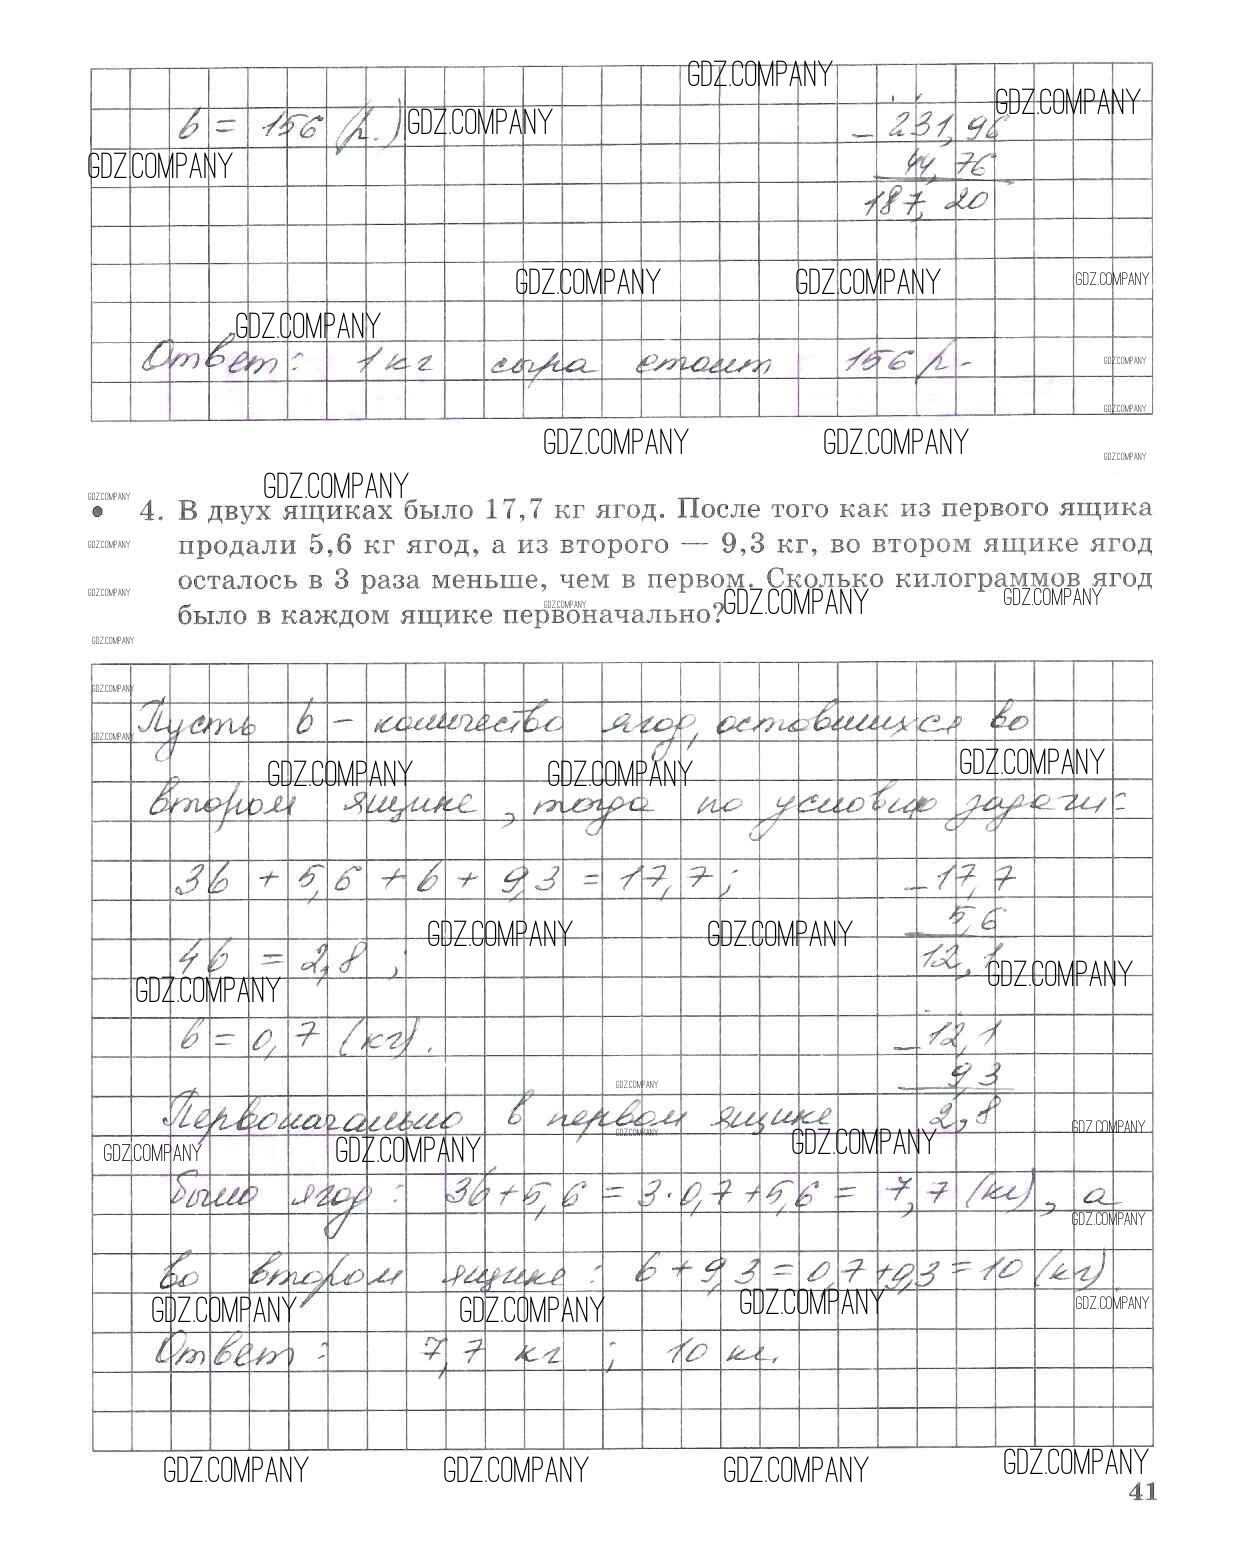 GDZ.COMPANY
b = 156 (р.) GDZ.COMPANY
231,96 GDZ.COMPANY
GDZ.COMPANY
- 44,76
187,20
GDZ.COMPANY GDZ.COMPANY GDZ.COMPANY
GDZ.COMPANY
Ответ: 1 кг сыра стоит 156 р. GDZ.COMPANY
GDZ.COMPANY
GDZ.COMPANY GDZ.COMPANY GDZ.COMPANY
GDZ.COMPANY GDZ.COMPANY
• 4. В двух ящиках было 17,7 кг ягод. После того как из первого ящика
GDZ.COMPANY продали 5,6 кг ягод, а из второго — 9,3 кг, во втором ящике ягод
GDZ.COMPANY осталось в 3 раза меньше, чем в первом. Сколько килограммов ягод
было в каждом ящике первоначально? GDZ.COMPANY GDZ.COMPANY GDZ.COMPANY
GDZ.COMPANY
GDZ.COMPANY
Пусть b – количество ягод, оставшихся во
GDZ.COMPANY
GDZ.COMPANY GDZ.COMPANY GDZ.COMPANY
втором ящике, тогда по условию задачи:
3b + 5,6 + b + 9,3 = 17,7; - 17,7
5,6
GDZ.COMPANY GDZ.COMPANY
4b = 2,8; 12,1
GDZ.COMPANY GDZ.COMPANY
b = 0,7 (кг). - 12,1
9,3
GDZ.COMPANY
Первоначально в первом ящике 2,8
GDZ.COMPANY GDZ.COMPANY
GDZ.COMPANY GDZ.COMPANY GDZ.COMPANY
было ягод: 3b+5,6 = 3·0,7+5,6 = 7,7 (кг), а
GDZ.COMPANY
во втором ящике: b+9,3=0,7+9,3=10 (кг)
GDZ.COMPANY GDZ.COMPANY GDZ.COMPANY GDZ.COMPANY
Ответ: 7,7 кг; 10 кг.
GDZ.COMPANY GDZ.COMPANY GDZ.COMPANY GDZ.COMPANY
41